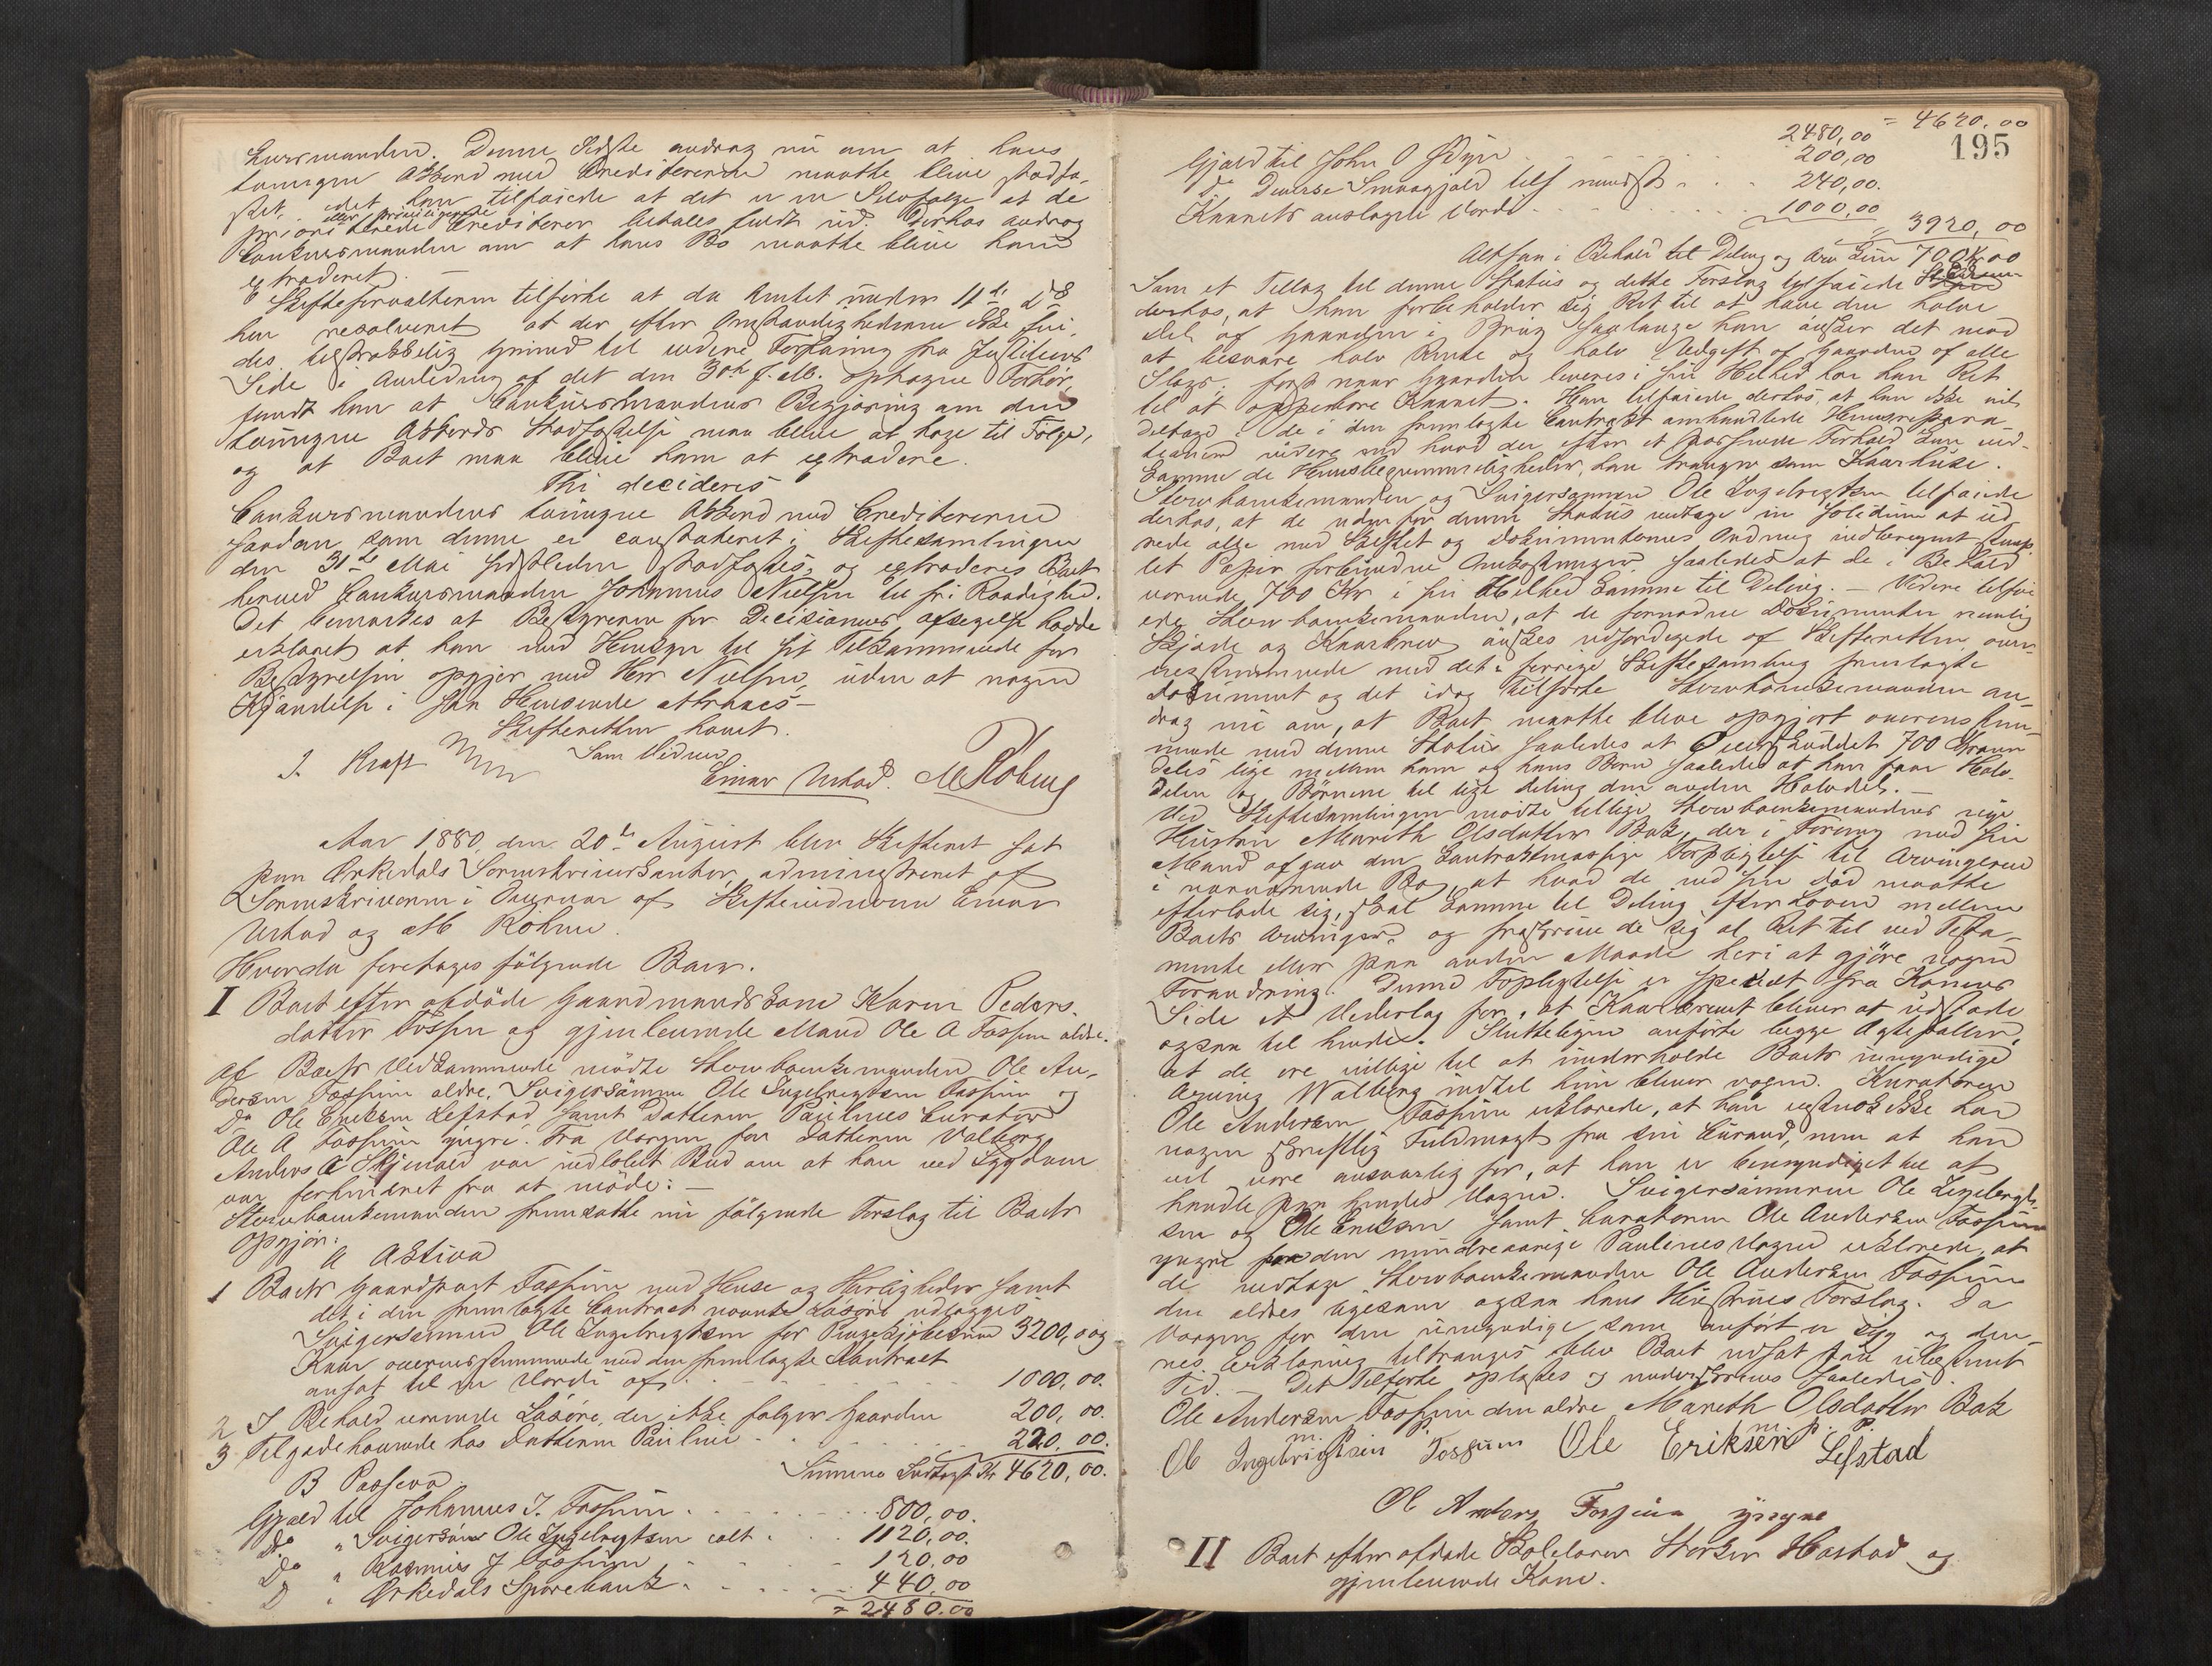 kursmanden. Denne Sidste androg nu om at hans
tvungne Akkord med Creditorerne maatte blive stadfæ-
stet, idet han tilføiede at det er en Selvfølge at de
prioriterede eller priviligerede Creditorer betales fuldt ud. Derhos androg
Concursmanden om at hans Bo maatte blive ham
extraderet. —
Skifteforvalteren tilførte at da Amtet under 11te ds
har resolveret at der efter Omstændighederne ikke fin-
des tilstrækkelig Grund til videre Forføining fra Justitiens
Side i Anledning af det den 30te f. M. optagne Forhör,
fandt han at Concursmandens Begjæring om den
tvungne Akkords Stadfæstelse maa blive at tage til Følge,
og at Boet maa blive ham at extradere.
Thi decideres
Concursmandens tvungne Akkord med Creditorerne
saadan som denne er constateret i Skiftesamlingen
den 31te Mai sidstleden stadfæstes, og extraderes Boet
herved Concursmanden Johannes Nielsen til fri Raadighed.
Det bemærkes at Bestyreren før Decisionens afsigelse havde
erklæret at han med Hensyn til sit Tilkommende for
Bestyrelsen opgjør med Herr Nielsen, uden at nogen
Kjendelse i saa Henseende attraaes —
Skifteretten hævet.
J. Kraft Som Vidner
Einar Urstad. M Röberg
Aar 1880, den 20de August blev Skifteret sat
paa Orkedals Sorenskriverkontor, administreret af
Sorenskriveren i Overvær af Skiftevidnerne Einar
Urstad og M Röhme.
Hvorda foretages følgende Boer.
I Boet efter afdöde Gaardmandskone Karen Peders-
datter Fossum og gjenlevende Mand Ole A Fossum ældre.
Af Boets Vedkommende mödte Stervboenkemanden Ole An-
dersen Fossum ældre, Svigersönnen Ole Ingebrigtsen Fossum og
Do Ole Eriksen Lefstad samt Datteren Paulines Curator
Ole A Fossum yngre. Fra Værgen for Datteren Valborg
Anders A Skjenald var indlöbet Bud om at han ved Sygdom
var forhindret fra at möde: —
Stervboenkemanden fremsatte nu fölgende Forslag til Boets
Opgjör:
A Aktiva
1 Boets Gaardpart Fossum med Huse og Herligheder samt
det i den fremlagte Contract nævnte Lösöre udlægges
Svigersönnen Ole Ingebrigtsen for Penge Kjöbesum 3200,00 og
Kaar overensstemmende med den fremlagte Kontract
ansat til en Værdi af . . . 1000,00.
2 I Behold værende Lösöre, der ikke følger Gaarden 200,00.
3 Tilgodehavende hos Datteren Pauline . . . 220,00.
Summa Indtægt Kr 4620,00.
B Passiva
Gjæld til Johannes J. Fossum . . . 800,00.
Do " Svigersön Ole Ingebrigtsen ialt . 1120,00.
Do " Rasmus J Fossum . . . 120,00
D " Orkedals Sparebank . . . 440,00
= 2480.00
195
2480,00 = 4620,00
Gjæld til John O . . . 200,00
Do Diverse Smaagjæld . . . 240,00.
Kaarets anslagne Værdi . . . 1000,00
= 3920,00
Altsaa i Behold til Deling og Arv Kun 700 Kr 00
Som et Tillæg til denne Status og dette Forslag tilføiede
derhos, at han forbeholder sig Ret til at have den halve
Del af Gaarden i Brug saalænge han ønsker det mod
at besvare halv Rente og halv Udgift af Gaarden af alle
Slags; først naar Gaarden leveres i sin Helhed har han Ret
til at oppebære Kaaret. Han tilføiede derhos, at han ikke vil
deltage i de i den fremlagte Contrakt omhandlede Husrepara-
tioner videre end hvad der efter et passende Forhold kan ved-
komme de Husbekvemmeligheder, han trænger som Kaarhuse.
Stervboenkemanden og Svigersönnen Ole Ingebrigtsen tilføiede
derhos, at de udenfor denne Status vedtage in solidum at ud-
rede alle med Skiftet og Dokumenternes Ordning indberegnet stemp-
let Papir forbundne Omkostninger, saaledes at de i Behold
værende 700 Kr i sin Helhed komme til Deling. — Videre tilføi-
ede Stervboenkemanden, at de fornødne Dokumenter nemlig
Skjøde og Kaarbrev ønskes udfærdigede af Skifteretten over-
ensstemmende med det i forrige Skiftesamling fremlagte
Dokument og det idag Tilførte. Stervboenkemanden an-
drog nu om, at Boet maatte blive opgjort overensstem-
mende med denne Status saaledes at Overskuddet 700 Kroner
deles lige mellem ham og hans Börn saaledes at han faar Halv-
delen og Börnene til lige Deling den anden Halvdel. —
Ved Skiftesamlingen mödte tillige Stervboenkemandens nye
Hustru Mareth Olsdatter Bak, der i Forening med sin
Mand afgav den kontraktmæssige Forpligtelse til Arvingerne
i nærværende Bo, at hvad de ved sin Död maatte
efterlade sig, skal komme til Deling efter Loven mellem
Boets Arvinger, og fraskrive de sig al Ret til ved Testa-
mente eller paa anden Maade heri at gjöre nogen
Forandring. Denne Forpligtelse er specielt fra Konens
Side et Vederlag for, at Kaarbrevet bliver at udstæde
ogsaa til hende. Sluttelign anförte begge Ægtefæller,
at de ere villige til at underholde Boets umyndige
Arving Walborg indtil hun bliver voxen. Kuratoren
Ole Andersen Fossum erklærede, at han vistnok ikke har
nogen skriftlig Fuldmagt fra sin Curand, men at han
vil være ansvarlig for, at han er bemyndiget til at
handle paa hendes Vegne. Svigersönnerne Ole Ingebrigt-
sen og Ole Eriksen samt Curatoren Ole Andersen Fossum
yngre paa den mindreaarige Paulines Vegne erklærede, at
de vedtage Stervboenkemanden Ole Andersen Fossum
den ældres ligesom ogsaa hans Hustrues Forslag. Da
Værgen for den umyndige som anfört er syg og den-
nes Erklæring tiltrænges blev Boet udsat paa ubestemt
Tid. — Det Tilförte oplæstes og underskreves saaledes.
Ole Andersen Fossum den ældre Mareth Olsdatter Bak
m. p. P. m. p. P.
Ole Ingebrigtsen Fossum Ole Eriksen Lefstad
Ole Anders Fossum yngre
II Boet efter afdøde Selveier Sterker Hostad og
gjenlevende Kone.